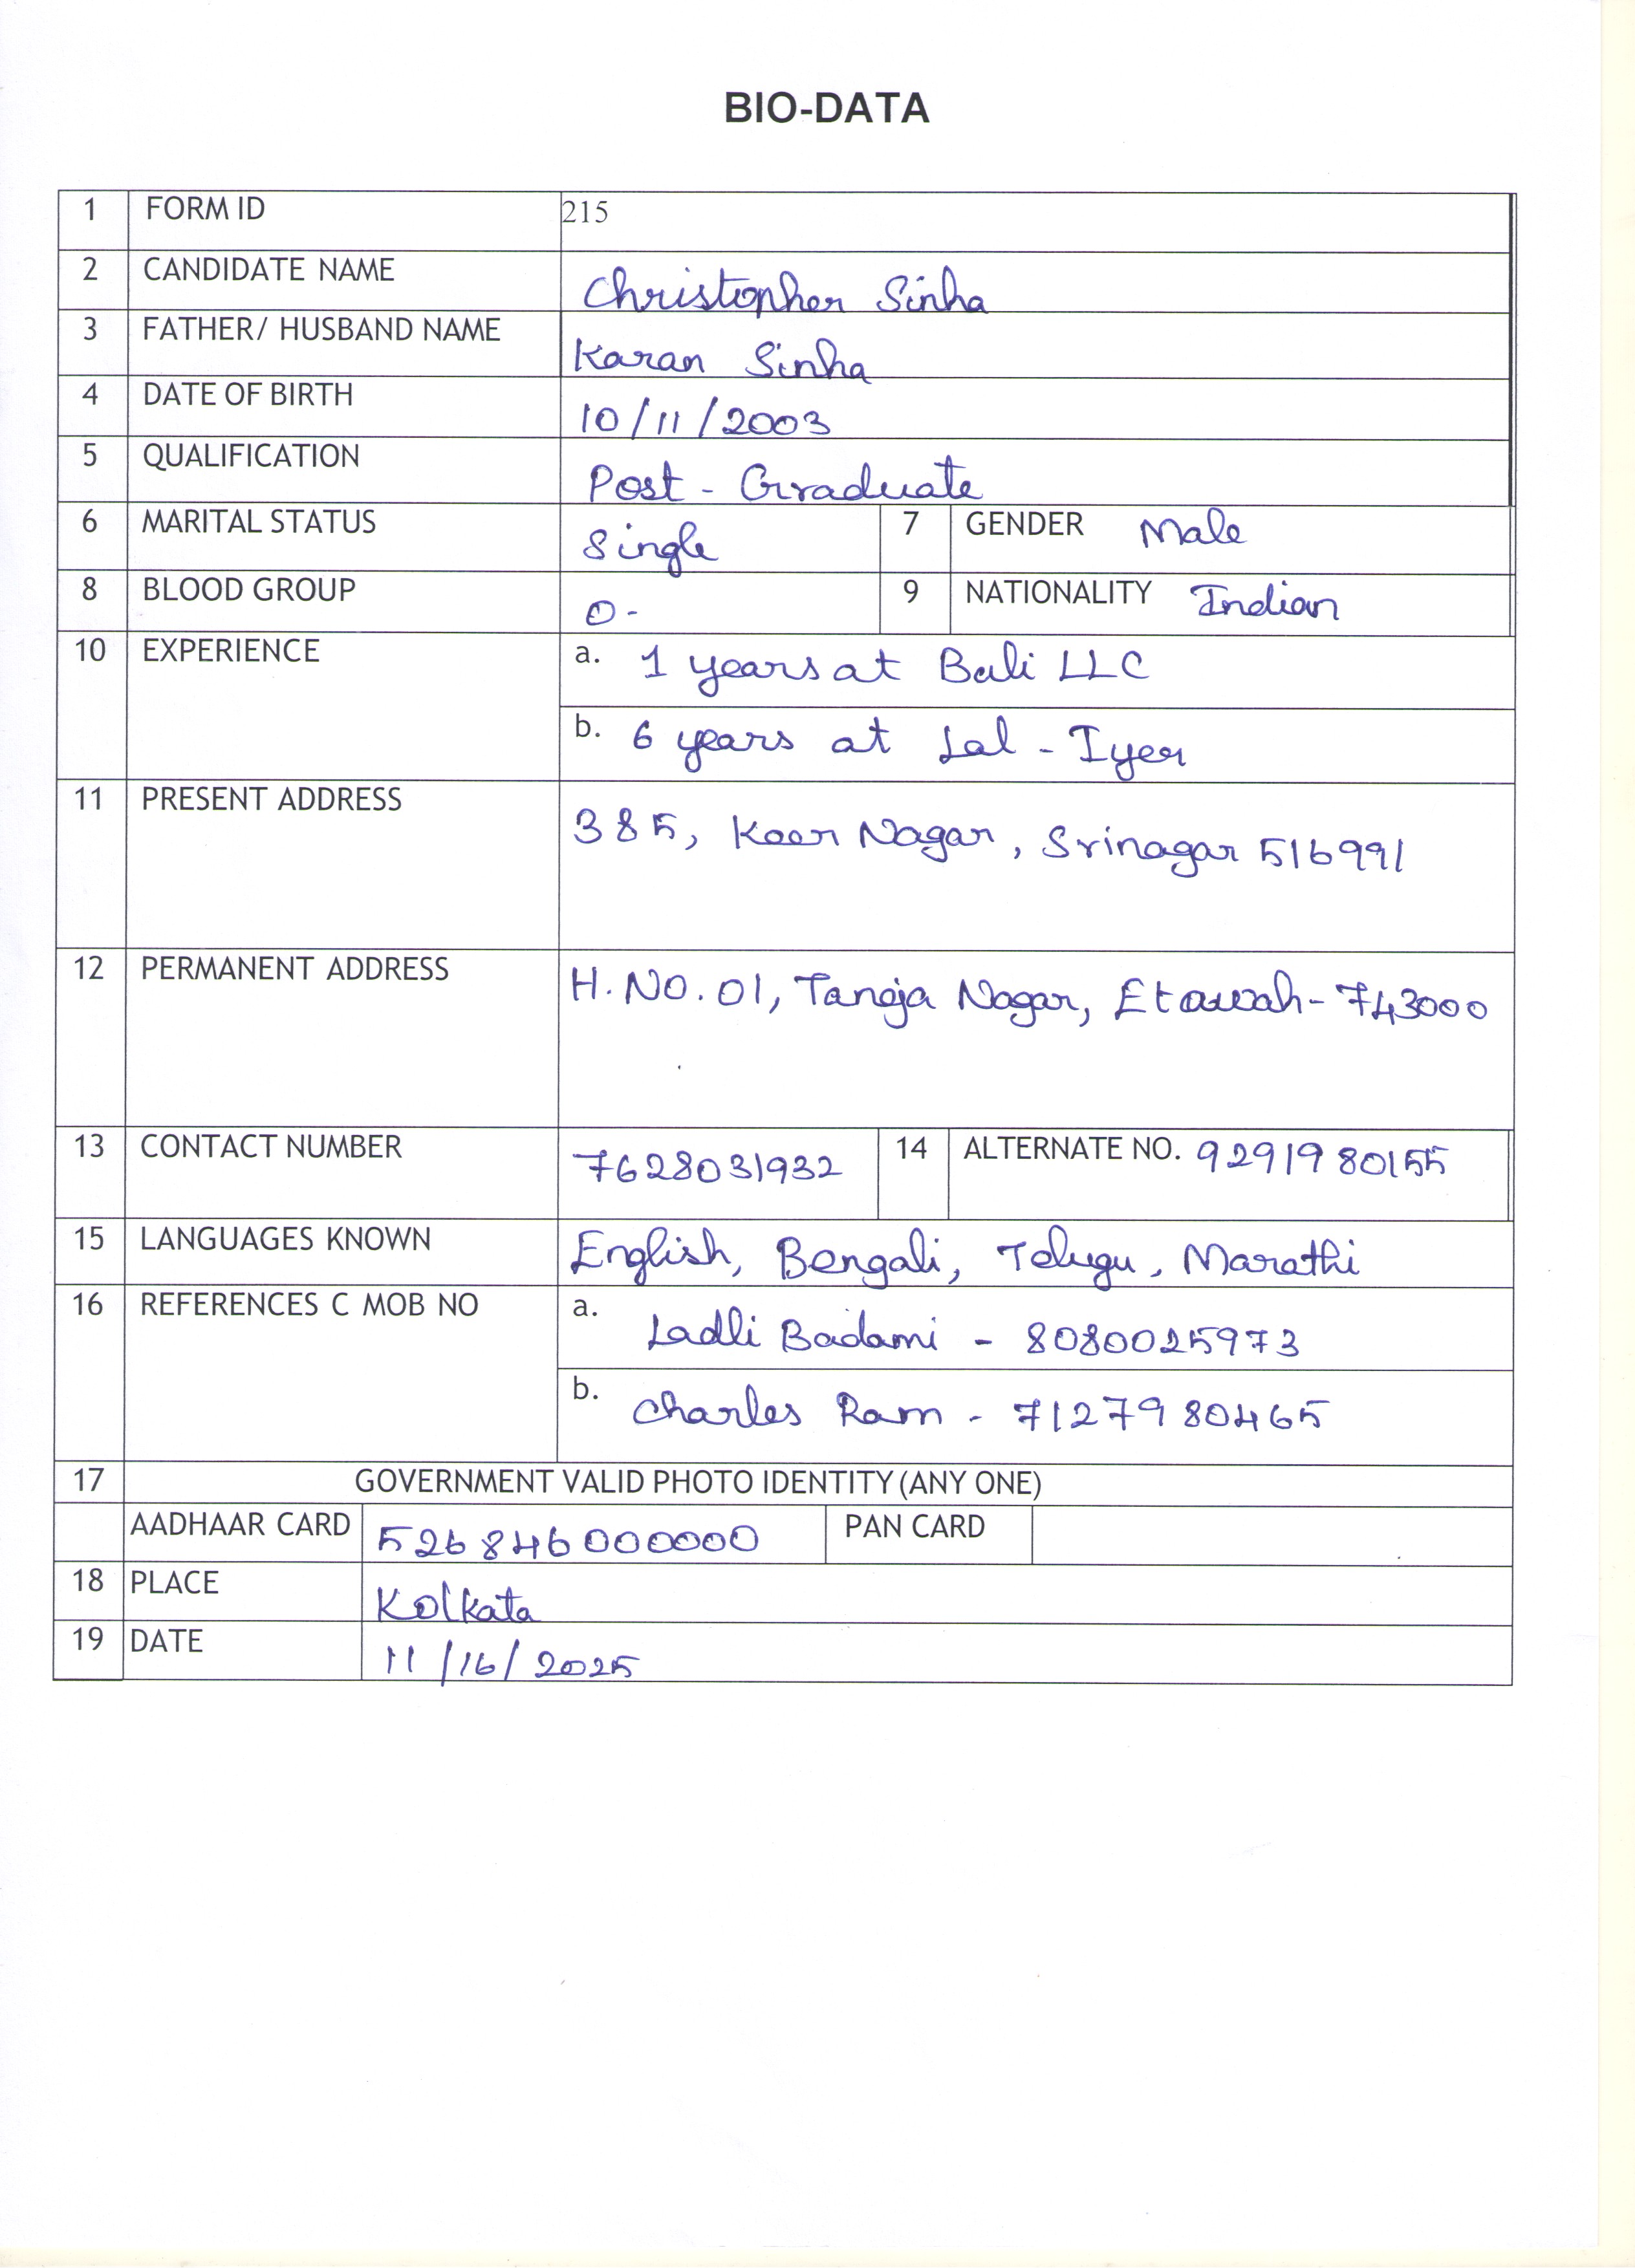 BIO-DATA
1 FORM ID 215
2 CANDIDATE NAME Christopher Sinha
3 FATHER/ HUSBAND NAME Karan Sinha
4 DATE OF BIRTH 10/11/2003
5 QUALIFICATION Post - Graduate
6 MARITAL STATUS Single 7 GENDER Male
8 BLOOD GROUP O- 9 NATIONALITY Indian
10 EXPERIENCE a. 1 years at Bali LLC
b. 6 years at Lal - Iyer
11 PRESENT ADDRESS 385, Keer Nagar, Srinagar 516991
12 PERMANENT ADDRESS H.NO.01, Taneja Nagar, Etawah- 743000
13 CONTACT NUMBER 7628031932 14 ALTERNATE NO. 9291980155
15 LANGUAGES KNOWN English, Bengali, Telugu, Marathi
16 REFERENCES C MOB NO a. Ladli Badami - 8080025973
b. Charles Ram - 7127980465
17 GOVERNMENT VALID PHOTO IDENTITY (ANY ONE)
AADHAAR CARD 526846000000 PAN CARD
18 PLACE Kolkata
19 DATE 11/16/2025